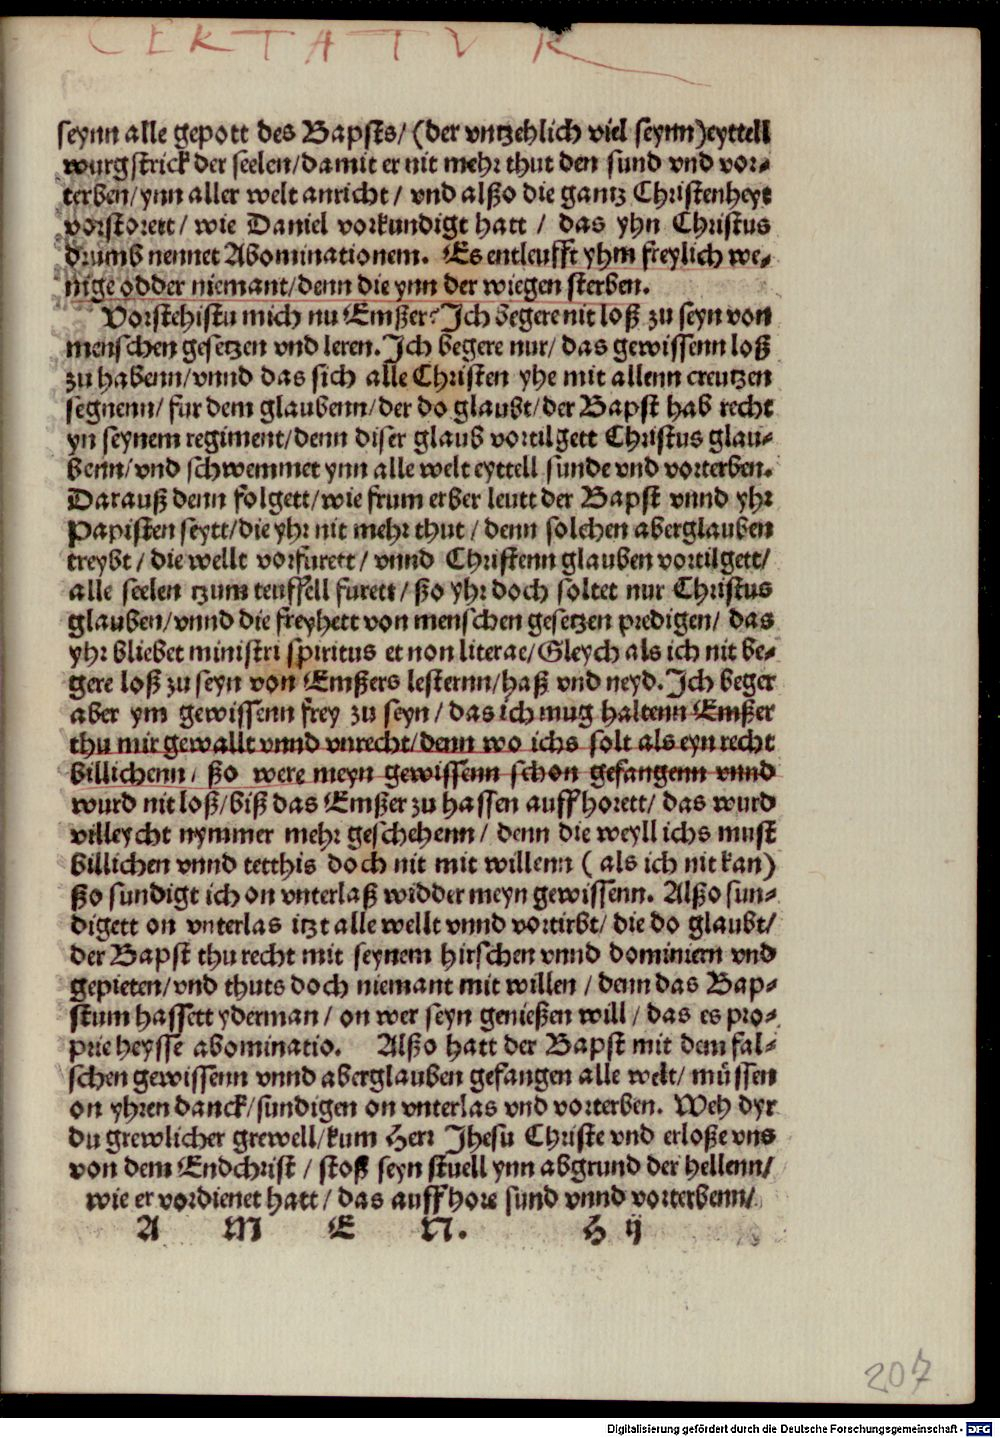 CERTATVR
seynn alle gepott des Bapsts/ (der vntzehlich viel seynn) eyttell
wurgstrick der seelen/ damit er nit mehr thut den sund vnd vor-
terben/ ynn aller welt anricht/ vnd alßo die gantz Christenheyt
vorstorett/ wie Daniel vorkundigt hatt/ das yhn Christus
drumb nennet Abominationem. Es entleufft yhm freylich we-
nige odder niemant/ denn die ynn der wiegen sterben.
Vorstehistu mich nu Emßer? Ich begere nit loß zu seyn von
menschen gesetzen vnd leren. Ich begere nur/ das gewissenn loß
zu habenn/ vnnd das sich alle Christen yhe mit allenn creutzen
segnenn/ fur dem glaubenn/ der do glaubt/ der Bapst hab recht
yn seynem regiment/ denn diser glaub vortilgett Christus glau-
benn/ vnd schwemmet ynn alle welt eyttell sunde vnd vorterben.
Darauß denn folgett/ wie frum erber leutt der Bapst vnnd yhr
Papisten seytt/ die yhr nit mehr thut/ denn solchen aberglauben
treybt/ die wellt vorfurett/ vnnd Christenn glauben vortilgett/
alle seelen tzum teuffell furett/ ßo yhr doch soltet nur Christus
glauben/ vnnd die freyhett von menschen gesetzen predigen/ das
yhr bliebet ministri spiritus et non literae/ Gleych als ich nit be-
gere loß zu seyn von Emßers lesternn/ haß vnd neyd. Ich beger
aber ym gewissenn frey zu seyn/ das ich mug haltenn Emßer
thu mir gewallt vnnd vnrecht/ denn wo ichs solt als eyn recht
billichenn/ ßo were meyn gewissenn schon gefangenn vnnd
wurd nit loß/ biß das Emßer zu hassen auffhorett/ das wurd
villeycht nymmer mehr geschehenn/ denn die weyll ichs must
billichen vnnd tetthis doch nit mit willenn (als ich nit kan)
ßo sundigt ich on vnterlaß widder meyn gewissenn. Alßo sun-
digett on vnterlas itzt alle wellt vnnd vortirbt/ die do glaubt/
der Bapst thu recht mit seynem hirschen vnnd dominiern vnd
gepieten/ vnd thuts doch niemant mit willen/ denn das Bap-
stum hassett yderman/ on wer seyn genießen will/ das es pro-
prie heysse abominatio. Alßo hatt der Bapst mit dem fal-
schen gewissenn vnnd aberglauben gefangen alle welt/ müssen
on yhren danck/ sundigen on vnterlas vnd vorterben. Weh dyr
du grewlicher grewell/ kum Herr Jhesu Christe vnd erloße vns
von dem Endchrist/ stoß seyn stuell ynn abgrund der hellenn/
wie er vordienet hatt/ das auffhore sund vnnd vorterbenn/
A M E N. H ij
207
Digitalisierung gefördert durch die Deutsche Forschungsgemeinschaft - DFG